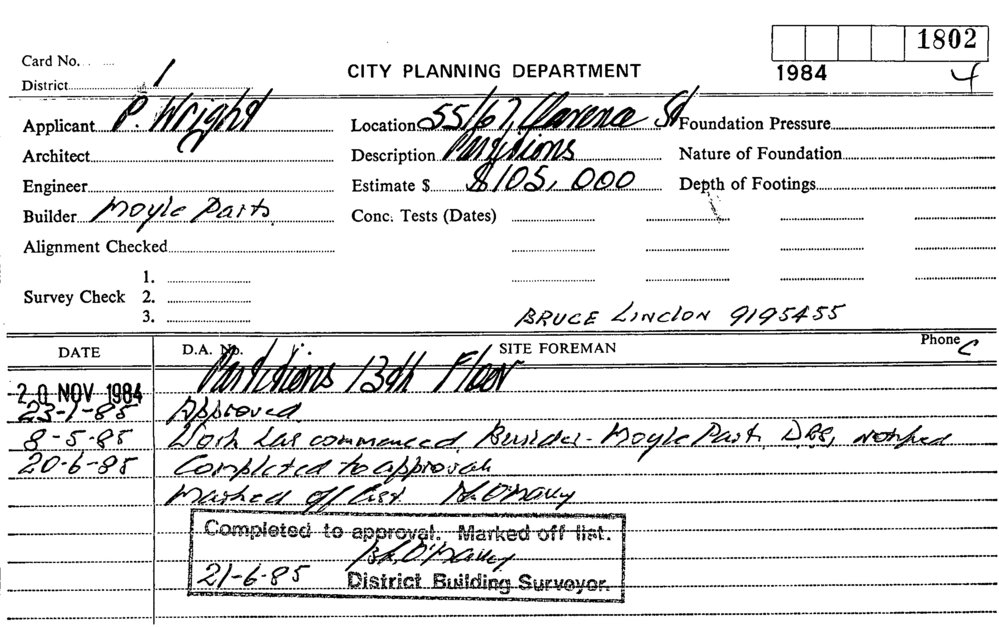 1802
Card No.
1984
4
CITY PLANNING DEPARTMENT
District 1
Applicant P. Wright
Location 55/67 Clarence St
Foundation Pressure
Architect
Description Partitions
Nature of Foundation
Engineer
Estimate $ $105,000
Depth of Footings
Builder Moyle Parts
Conc. Tests (Dates)
Alignment Checked
1.
Survey Check 2.
3.
BRUCE LINCLON 9195455
DATE
D.A. No.
SITE FOREMAN
Phone C
20 NOV 1984 Partitions 13th Floor
23-1-85 Approved
8-5-85 Work has commenced Builder - Moyle Parts DBS, notified
20-6-85 Completed to approval
Marked off list
Completed to approval. Marked off list.
21-6-85 District Building Surveyor.